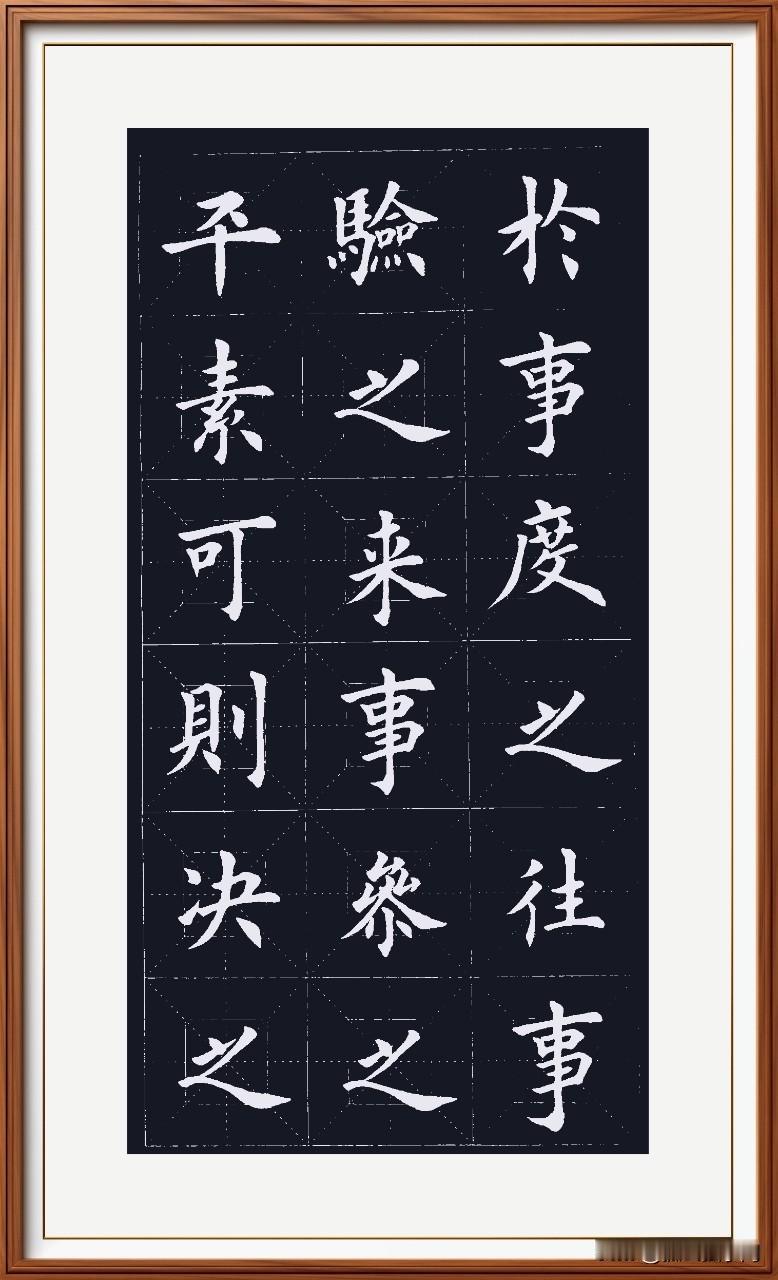 於事度之往事
驗之来事參之
平素可則决之